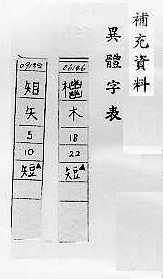 補充資料
異體字表
木
18
22
短▲
矢
5
10
短▲